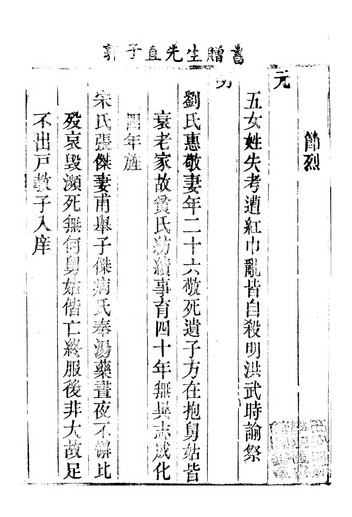 郭子直先生贈書
節烈
元
五女姓失考遭紅巾亂皆自殺明洪武時諭祭
明
劉氏惠敬妻年二十六敬死遺子方在抱舅姑皆
衰老家故貧氏紡績事育四十年無異志成化
四年旌
宋氏張傑妻甫舉子傑病氏奉湯藥晝夜不懈比
歿哀毀瀕死無何舅姑偕亡終服後非大故足
不出戸教子入庠